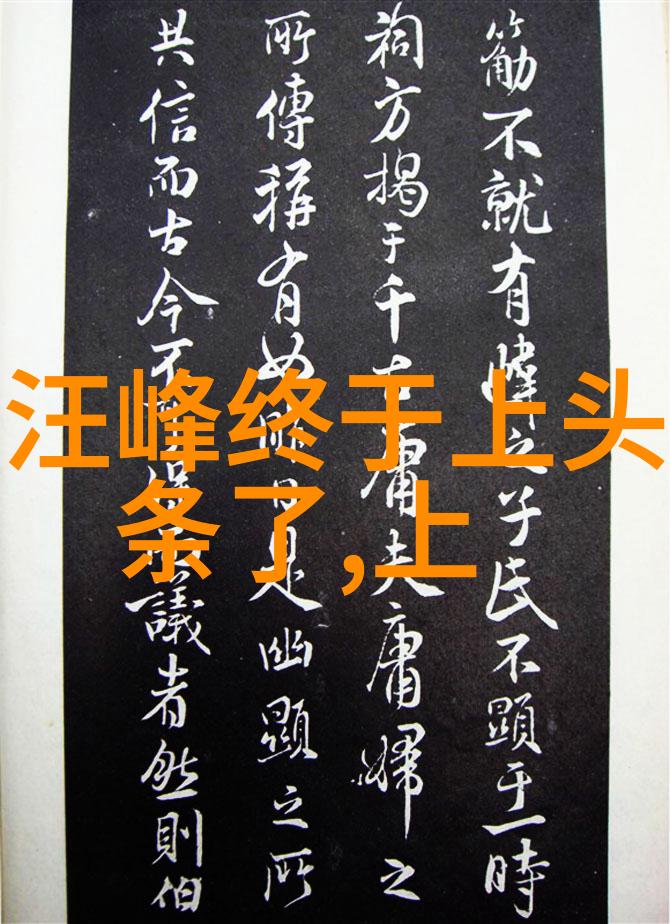 不就有之子氏不顯于一時
祠方揭于千古庸夫庸婦之
所傳稱有如日是幽顯之所
共信而古今不得議者然則伯
汪峰终于上头
条了,上